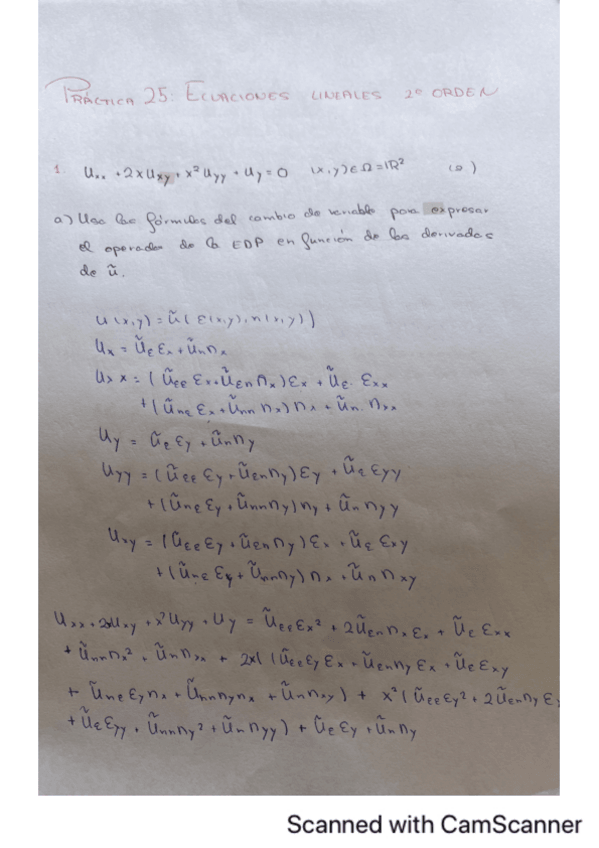 PRÁCTICA 25: ECUACIONES LINEALES 2º ORDEN
1. Uxx + 2xUxy + x²Uyy + Uy = 0 (x,y) ∈ Ω = ℝ² (0)
a) Usa las fórmulas del cambio de variable para expresar
el operador de la EDP en función de las derivadas
de ũ.
U(x,y) = ũ(ε(x,y), n(x,y))
Ux = ũε εx + ũn nx
Uxx = (ũεε εx + ũεn nx) εx + ũε · εxx
+ (ũnε εx + ũnn nx) nx + ũn · nxx
Uy = ũε εy + ũn ny
Uyy = (ũεε εy + ũεn ny) εy + ũε εyy
+ (ũnε εy + ũnn ny) ny + ũn nyy
Uxy = (ũεε εy + ũεn ny) εx + ũε εxy
+ (ũnε εy + ũnn ny) nx + ũn nxy
Uxx + 2xUxy + x²Uyy + Uy = ũεε εx² + 2ũεn nx εx + ũε εxx
+ ũnn nx² + ũn nxx + 2x((ũεε εy εx + ũεn ny εx + ũε εxy
+ ũnε εy nx + ũnn ny nx + ũn nxy) + x²(ũεε εy² + 2ũεn ny εy
+ ũε εyy + ũnn ny² + ũn nyy) + ũε εy + ũn ny
Scanned with CamScanner